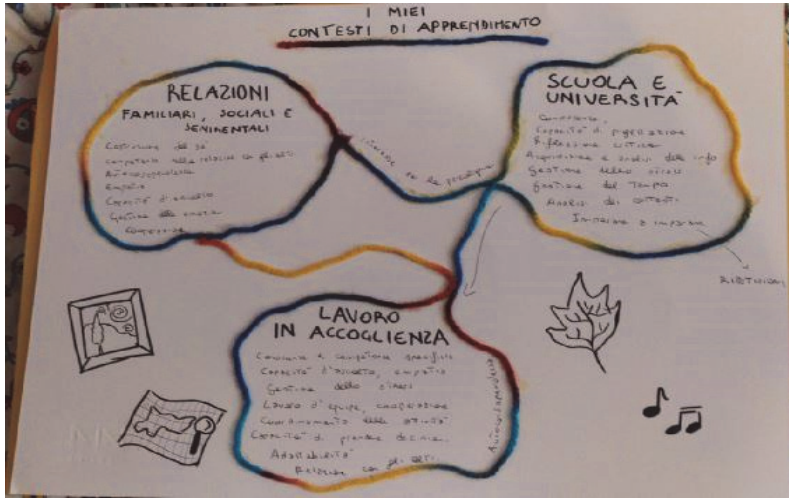 I MIEI
CONTESTI DI APPRENDIMENTO
RELAZIONI
FAMILIARI, SOCIALI E
SENIMENTALI
Costruzione del sé
competenza nella relazione con gli altri
Autoconsapevolezza
Empatia
Capacità di ascolto
Gestione delle emozioni
SCUOLA E
UNIVERSITÀ
Conoscenze,
Capacità di
Riflessione critica
Acquisizione e analisi delle info
Gestione dello stress
Gestione del Tempo
Analisi dei contesti
Imparare a imparare
LAVORO
IN ACCOGLIENZA
Conoscenze e competenze specifiche
Capacità d'ascolto, empatia
Gestione dello stress
Lavoro d'equipe, cooperazione
Coordinamento delle attività
Capacità di prendere decisioni
Adattabilità
Relazione con gli altri
Autoconsapevolezza